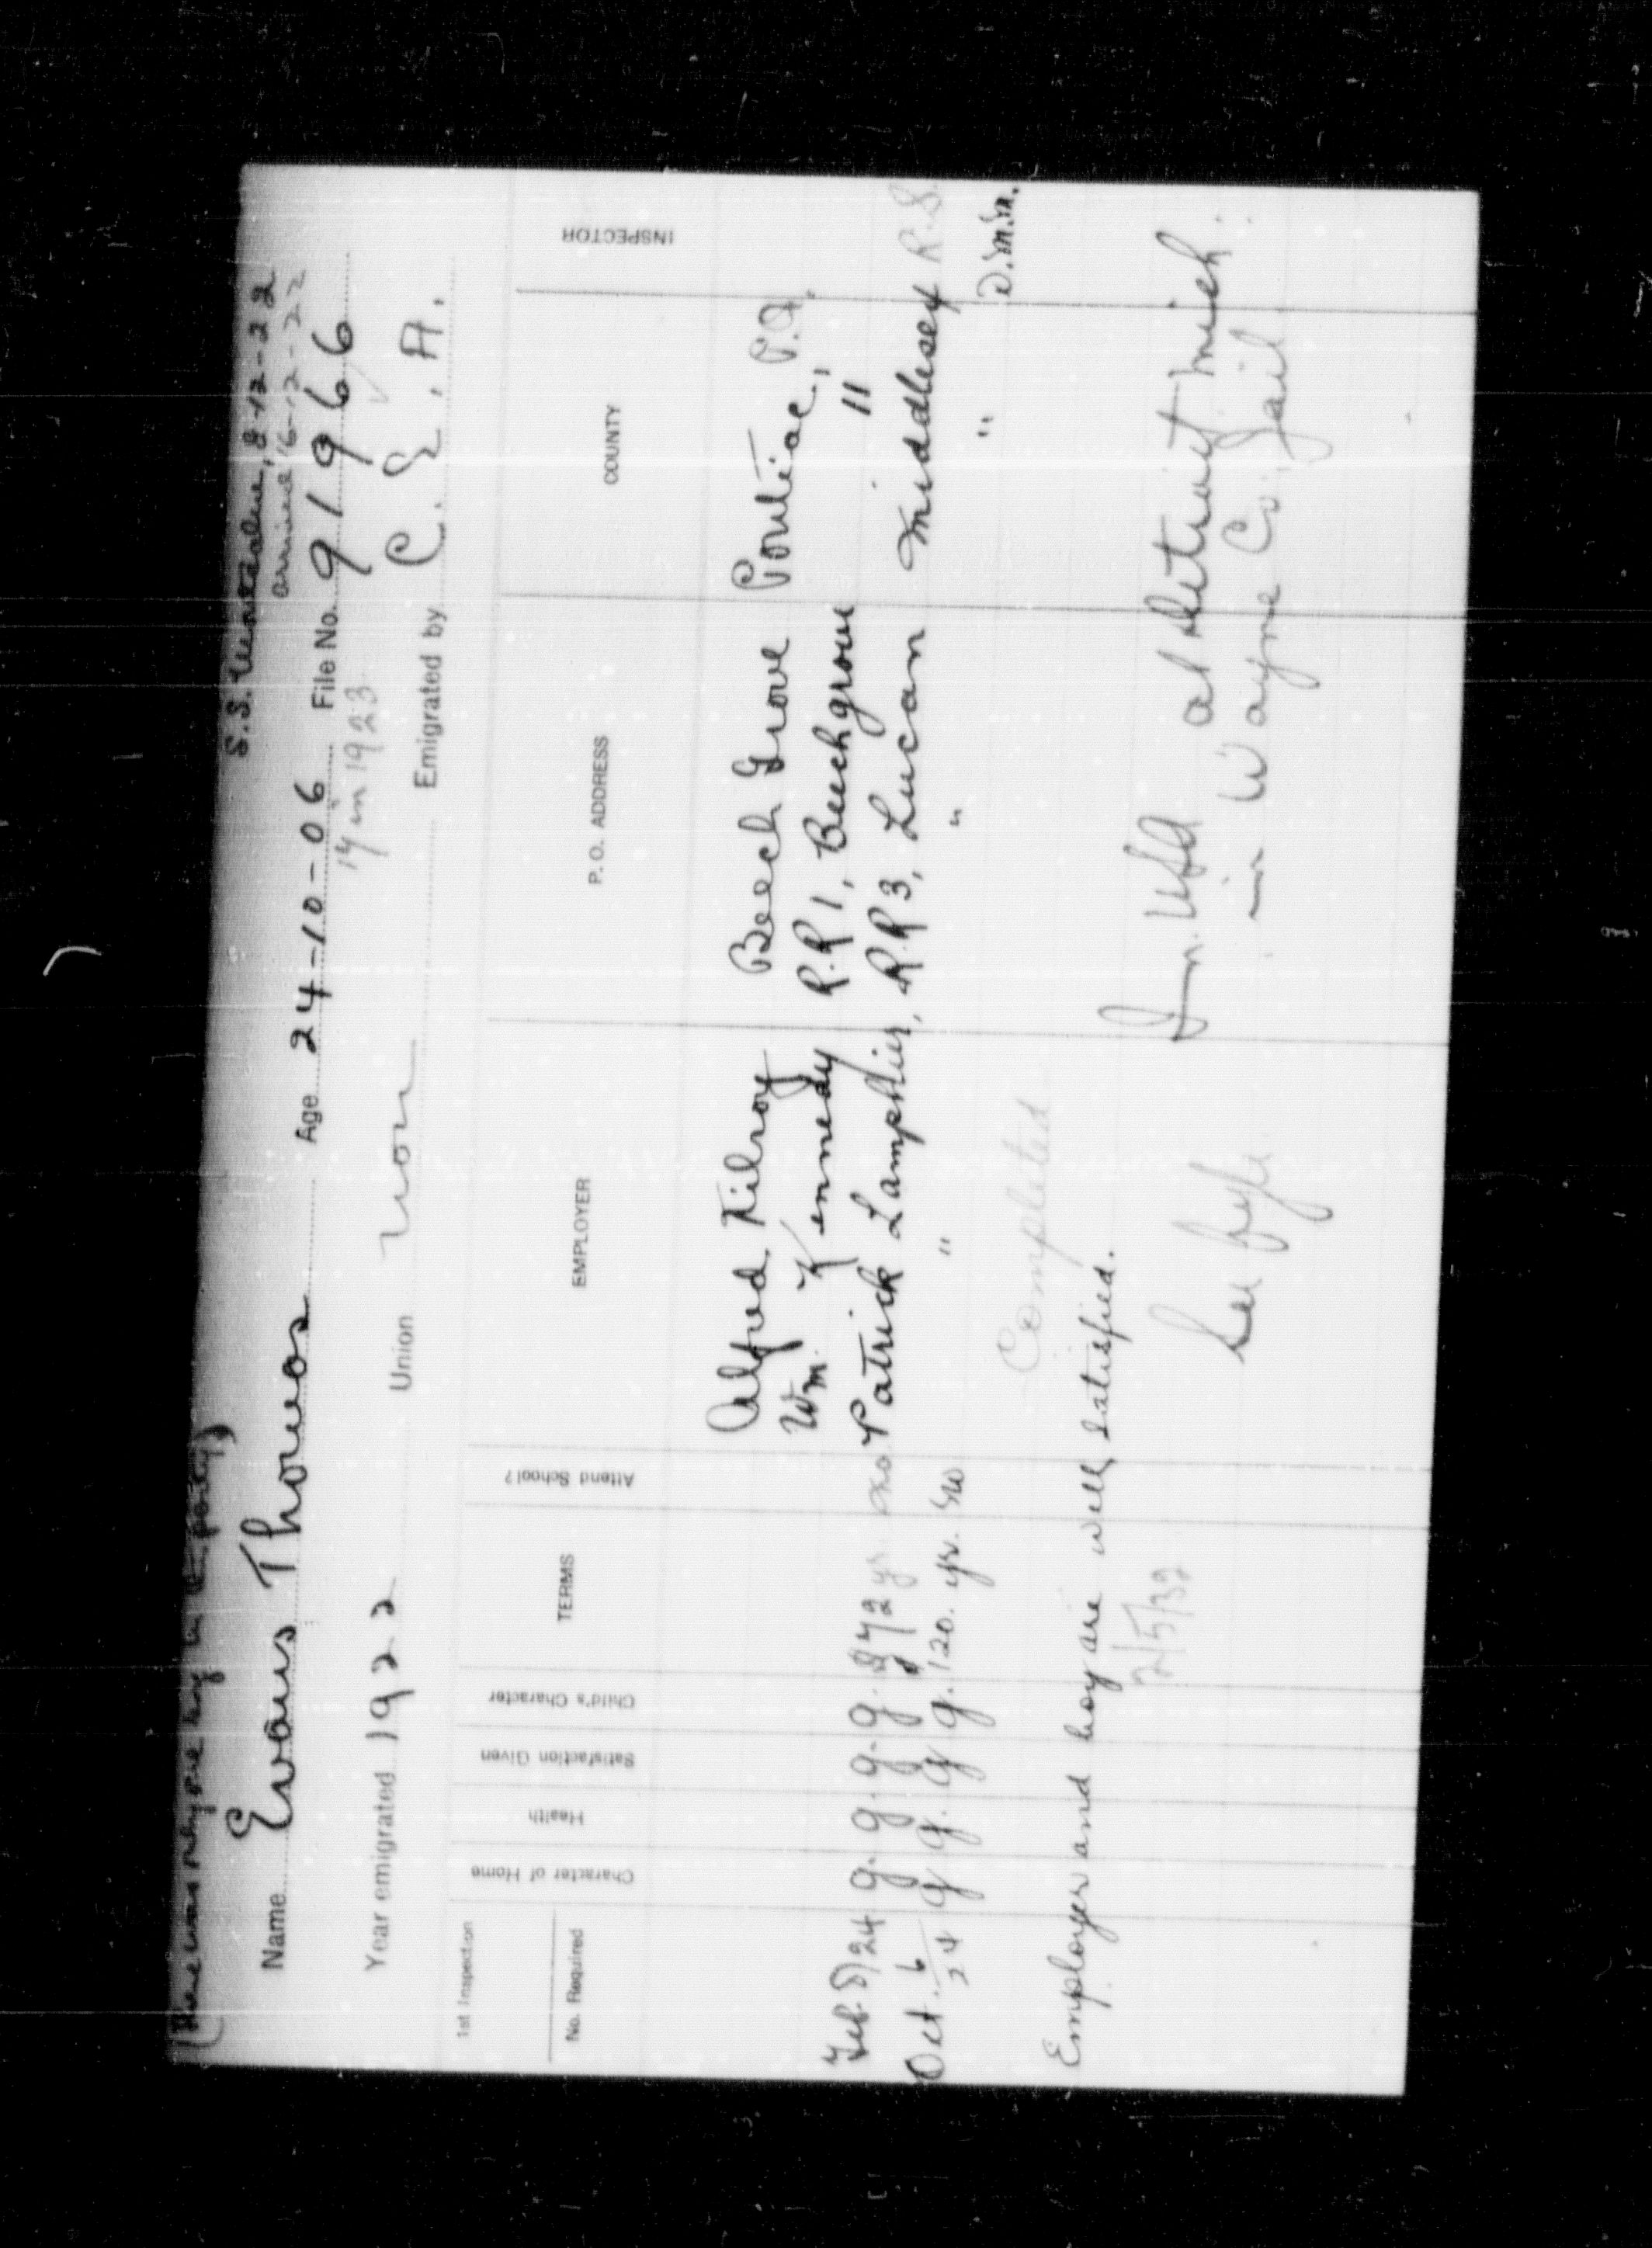 (There was only one boy in party)
S.S. 8-12-22
arrived 16-12-22
Name Evans Thomas Age 24-10-06 File No. 91966
17 in 1923
Year emigrated 1922 Union Non Emigrated by C. E. A.
1st Inspection
No. Required
Character of Home
Health
Satisfaction Given
Child's Character
TERMS
Attend School?
EMPLOYER
P.O. ADDRESS
COUNTY
INSPECTOR
Alfred Kilroy Beech Grove Pontiac, P.Q.
Wm. Kennedy R.R 1, Beechgrove "
Feb. 5/24 g. g. g. g. $72 yr. no Patrick Lamphier, R.R 3, Lucan Middlesex R.S.
Oct. 6/24 g g. g g. 120. yr. No " " " D.M.M.
Completed
Employer and boy are well satisfied.
2/5/32
Im. at Detroit Mich.
in Wayne Co. Jail
See file